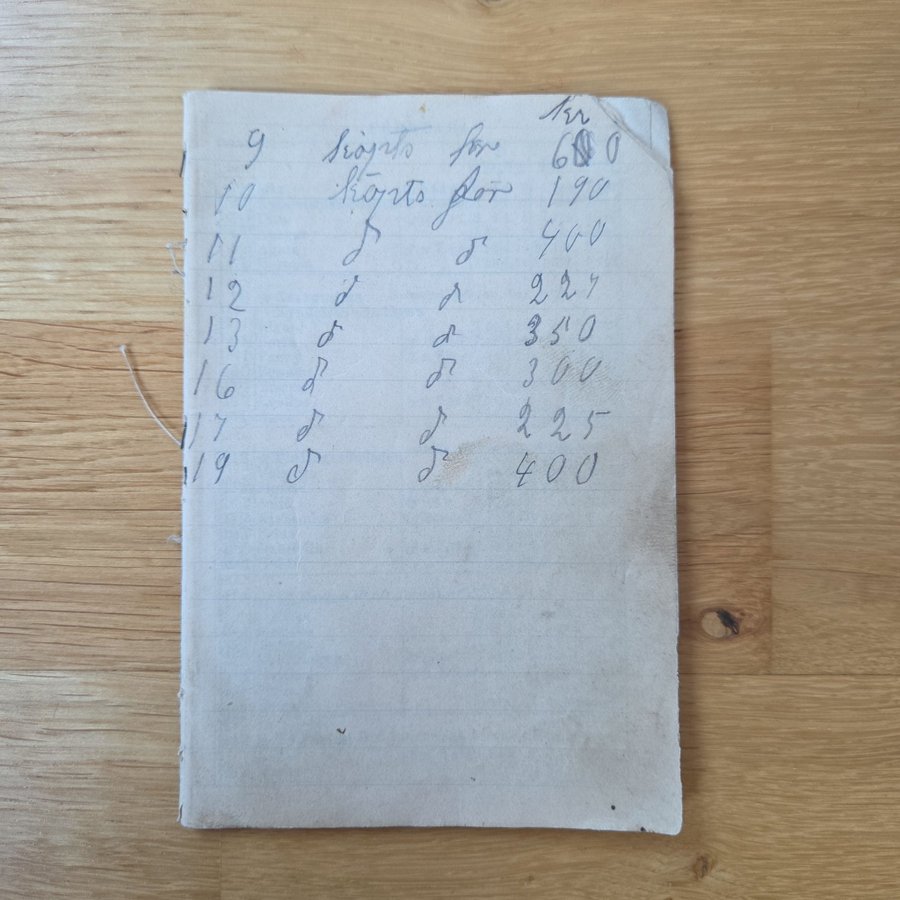 kr
9 köpts för 600
10 köpts för 190
11 d d 400
12 d d 227
13 d d 350
16 d d 300
17 d d 225
19 d d 400